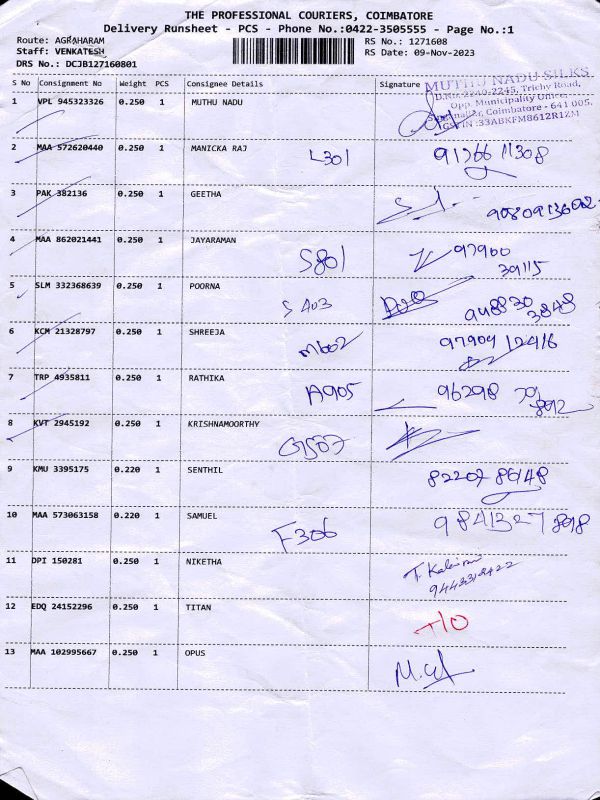 THE PROFESSIONAL COURIERS, COIMBATORE
Delivery Runsheet - PCS - Phone No.:0422-3505555 - Page No.:1
Route: AGRAHARAM
RS No.: 1271608
Staff: VENKATESH
RS Date: 09-Nov-2023
DRS No.: DCJB127160801
S No Consignment No Weight PCS Consignee Details Signature
MUTHU NADU SILKS
2245, Trichy Road,
Opp. Municipality Office
Coimbatore - 641 005.
GSTIN :33ABKFM8612R1ZM
1 VPL 945323326 0.250 1 MUTHU NADU
2 MAA 572620440 0.250 1 MANICKA RAJ
L301
3 PAK 382136 0.250 1 GEETHA
4 MAA 862021441 0.250 1 JAYARAMAN
S801 97960
39115
5 SLM 332368639 0.250 1 POORNA
S 403 948830
3848
6 KCM 21328797 0.250 1 SHREEJA
M602 97909 12416
7 TRP 4935811 0.250 1 RATHIKA
A905 96298
8 KVT 2945192 0.250 1 KRISHNAMOORTHY
G507
9 KMU 3395175 0.220 1 SENTHIL
82207 86148
10 MAA 573063158 0.220 1 SAMUEL
F306 9841327898
11 DPI 150281 0.250 1 NIKETHA
12 EDQ 24152296 0.250 1 TITAN
13 MAA 102995667 0.250 1 OPUS